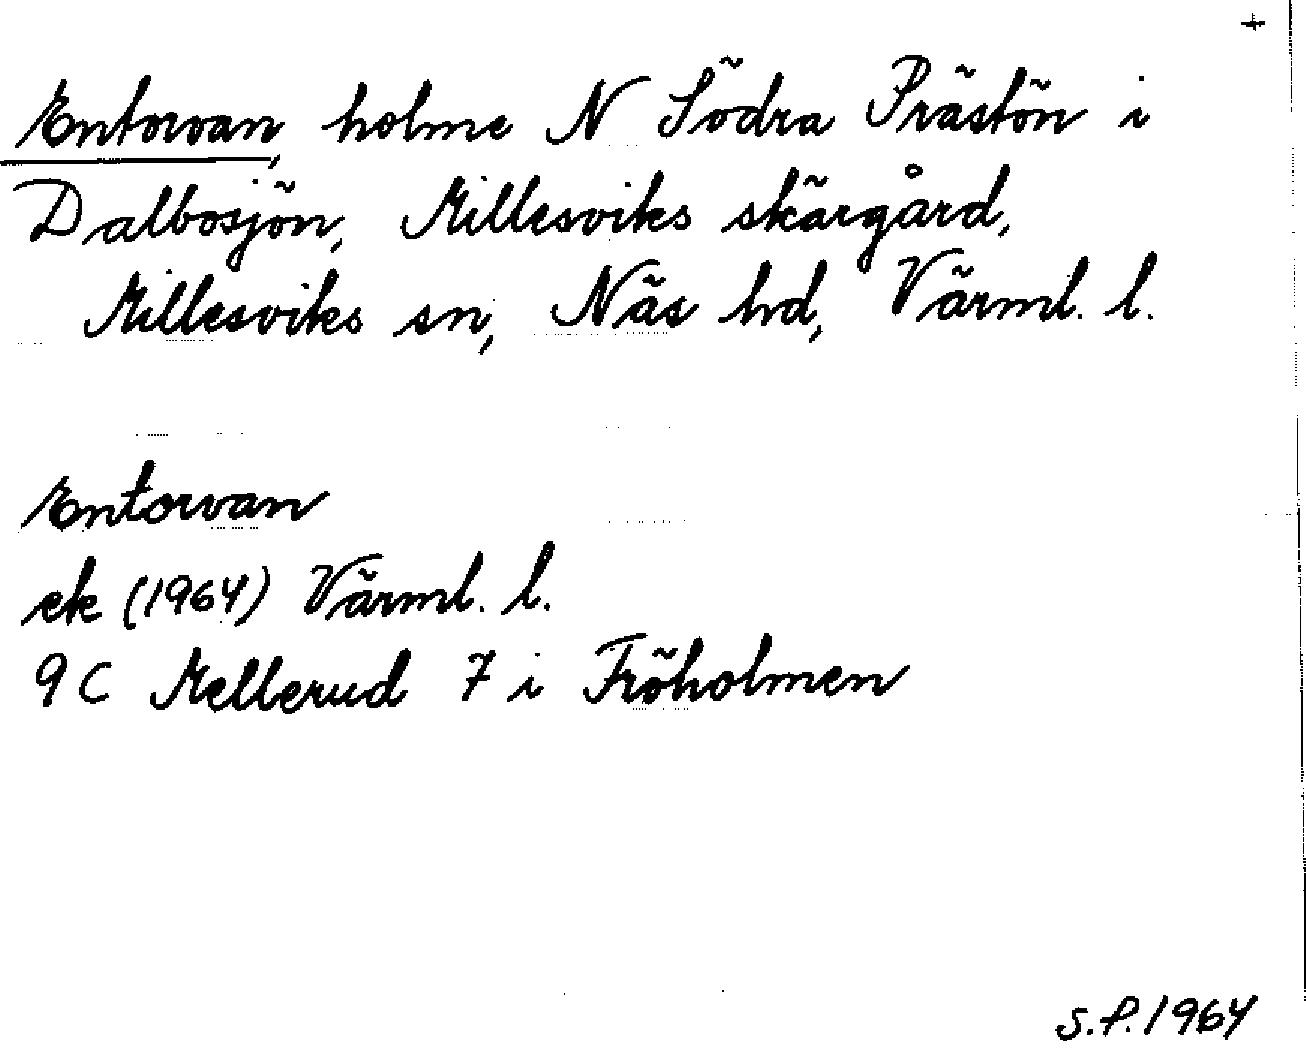 +
Entorvan, holme N Södra Prästön i
Dalbosjön, Millesviks skärgård,
Millesviks sn, Näs hd, Värml. l.
Entorvan
ek (1964) Värml. l.
9C Mellerud 7 i Fröholmen
S.P. 1964